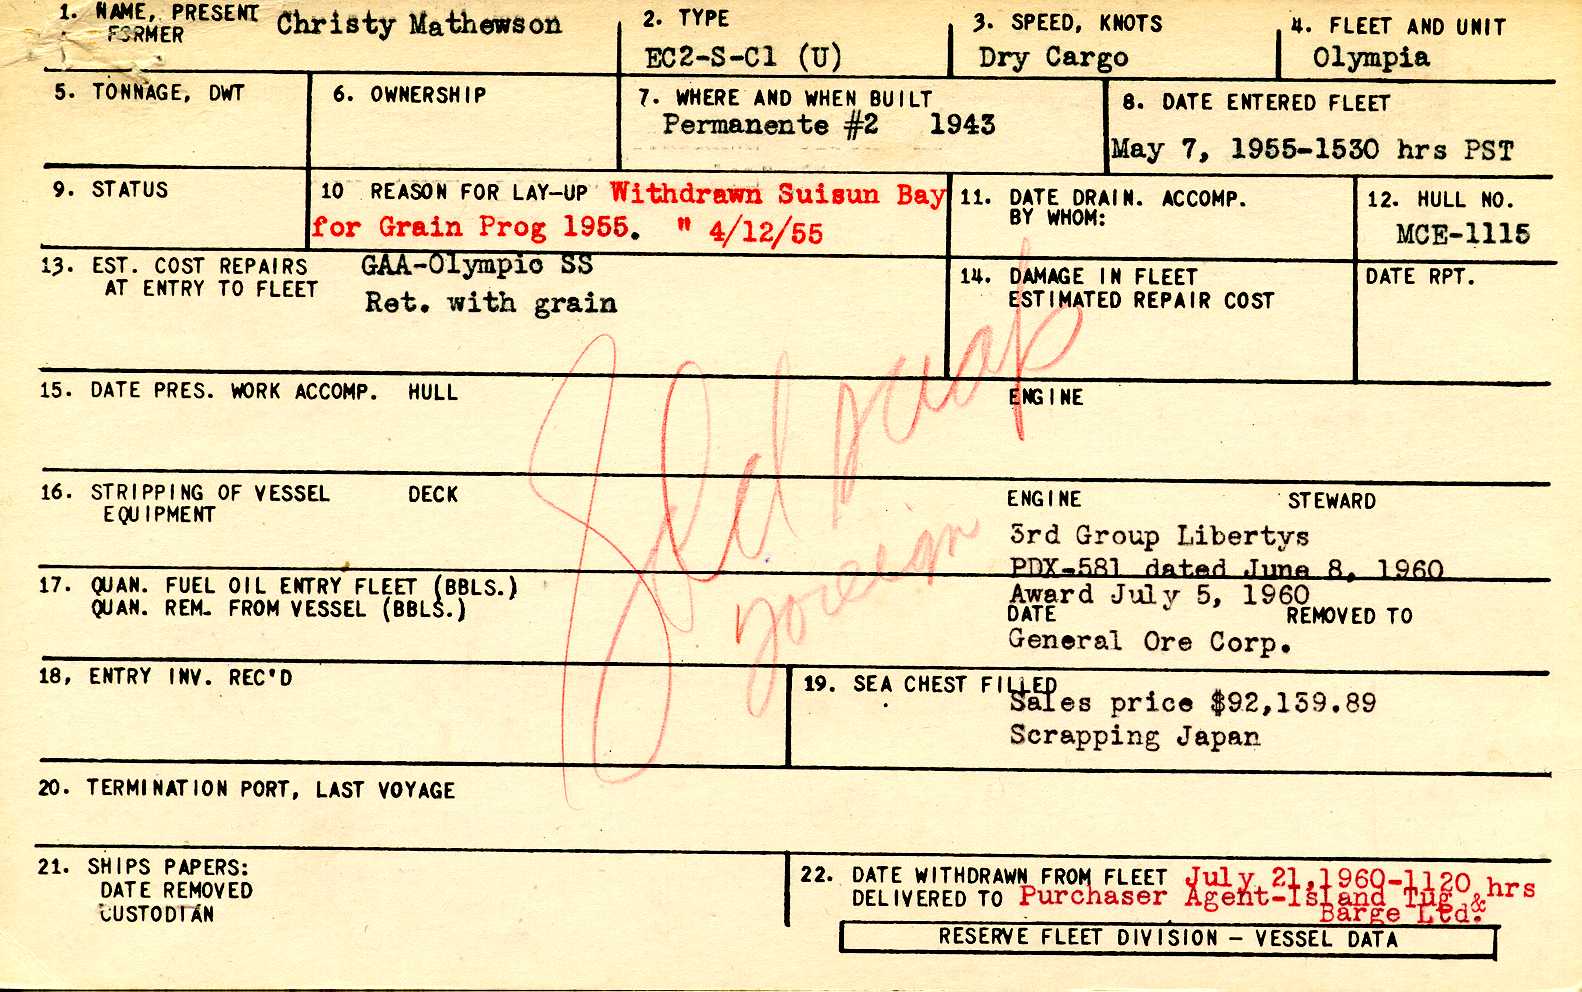 1. NAME, PRESENT Christy Mathewson
FORMER
2. TYPE
EC2-S-C1 (U)
3. SPEED, KNOTS
Dry Cargo
4. FLEET AND UNIT
Olympia
5. TONNAGE, DWT
6. OWNERSHIP
7. WHERE AND WHEN BUILT
Permanente #2 1943
8. DATE ENTERED FLEET
May 7, 1955-1530 hrs PST
9. STATUS
10 REASON FOR LAY-UP Withdrawn Suisun Bay
for Grain Prog 1955. " 4/12/55
11. DATE DRAIN. ACCOMP.
BY WHOM:
12. HULL NO.
MCE-1115
13. EST. COST REPAIRS
AT ENTRY TO FLEET
GAA-Olympic SS
Ret. with grain
14. DAMAGE IN FLEET
ESTIMATED REPAIR COST
DATE RPT.
Sold scrap
foreign
15. DATE PRES. WORK ACCOMP. HULL
ENGINE
16. STRIPPING OF VESSEL DECK
EQUIPMENT
ENGINE STEWARD
3rd Group Libertys
PDX-581 dated June 8, 1960
17. QUAN. FUEL OIL ENTRY FLEET (BBLS.)
QUAN. REM. FROM VESSEL (BBLS.)
Award July 5, 1960
DATE REMOVED TO
General Ore Corp.
18, ENTRY INV. REC'D
19. SEA CHEST FILLED
Sales price $92,139.89
Scrapping Japan
20. TERMINATION PORT, LAST VOYAGE
21. SHIPS PAPERS:
DATE REMOVED
CUSTODIAN
22. DATE WITHDRAWN FROM FLEET July 21, 1960-1120 hrs
DELIVERED TO Purchaser Agent-Island Tug &
Barge Ltd.
RESERVE FLEET DIVISION - VESSEL DATA